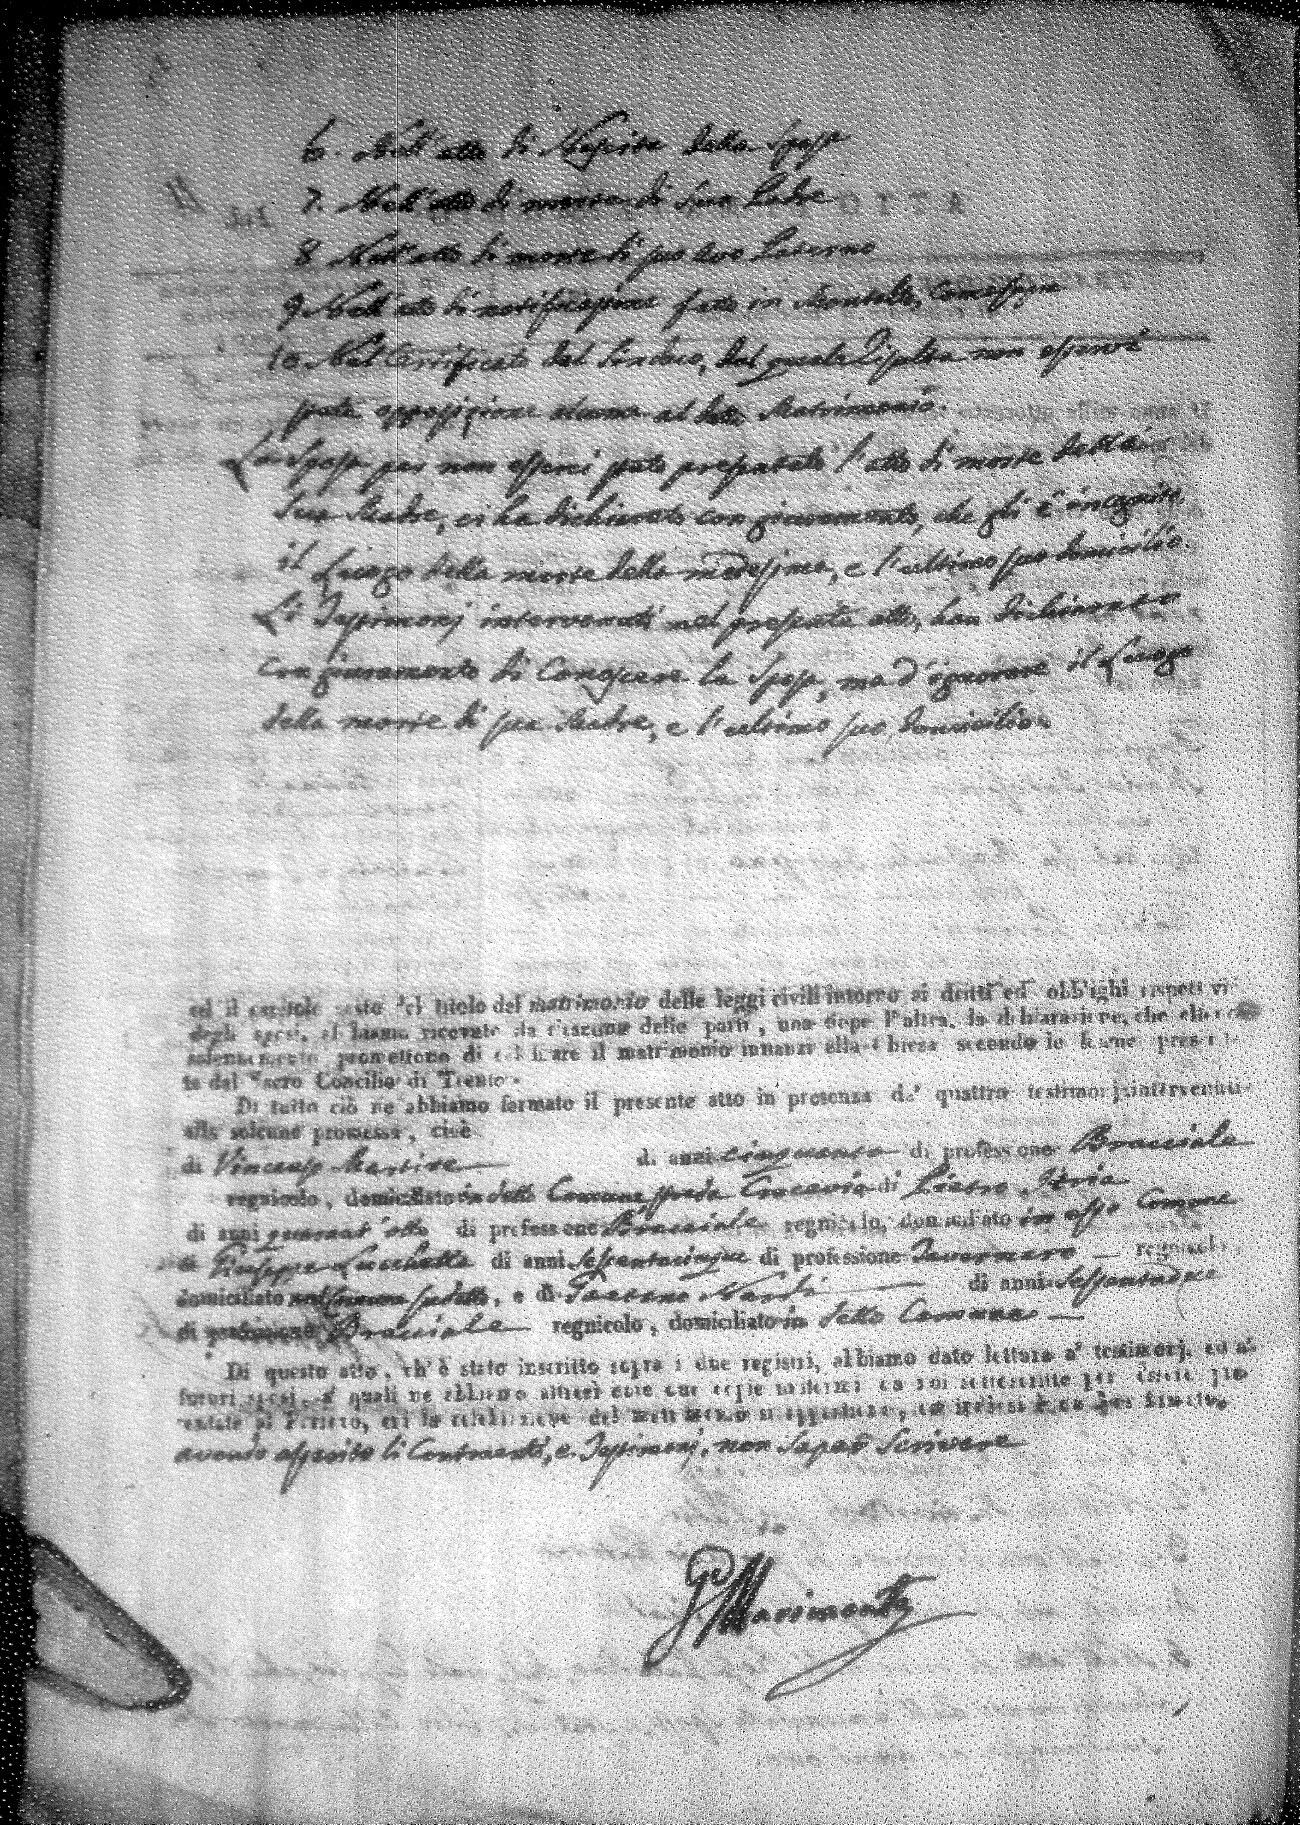 6. Nell'atto di Nascita della Sposa
7. Nell'atto di morte di Suo Padre
8. Nell'atto di morte di suo Avo Paterno
9. Nell'atto di notificazione fatta in Montalto, Comessa
10. Nel Certificato del Sindaco, dal quale Risulta non esservi
stata opposizione alcuna al detto Matrimonio.
La Sposa per non essersi stato presentato l'atto di morte della
Sua Madre, ci ha dichiarato con giuramento, che gli è incognito
il Luogo della morte della medesima, e l'ultimo suo domicilio.
Li Testimonj intervenuti nel presente atto, han dichiarato
con giuramento di Conoscere la Sposa, ma d'ignorare il Luogo
della morte di sua Madre, e l'ultimo suo domicilio.
ed il capitolo sesto del titolo del matrimonio delle leggi civili intorno ai dritti ed obblighi rispettivi
degli sposi, abbiamo ricevuto da ciascuna delle parti, una dopo l'altra, la dichiarazione, che elleno
solennemente promettono di celebrare il matrimonio innanzi alla Chiesa secondo le forme prescrit-
te dal sacro Concilio di Trento.
Di tutto ciò ne abbiamo formato il presente atto in presenza de' quattro testimonj intervenuti
alla solenne promessa, cioè
di Vincenzo Martire di anni cinquanta di professione Bracciale
regnicolo, domiciliato in detto Comune di Pietro
di anni quarant'otto di professione Bracciale regnicolo, domiciliato in esso Comune
di Giuseppe Lucchetta di anni sessantacinque di professione Tavernaro regnicolo,
domiciliato nel Comune sudetto, e di Gaetano Nardi di anni Sessantadue
di professione Bracciale regnicolo, domiciliato in detto Comune
Di questo atto, ch'è stato inscritto sopra i due registri, abbiamo dato lettura a' testimonj, ed a'
futuri sposi, a' quali ne abbiamo altresì date due copie uniformi da noi sottoscritte per essere pre-
sentate al Parroco, cui la celebrazione del matrimonio si appartiene, ed indi si è da noi firmato,
avendo asserito li Contraenti, e Testimonj, non Sapere Scrivere